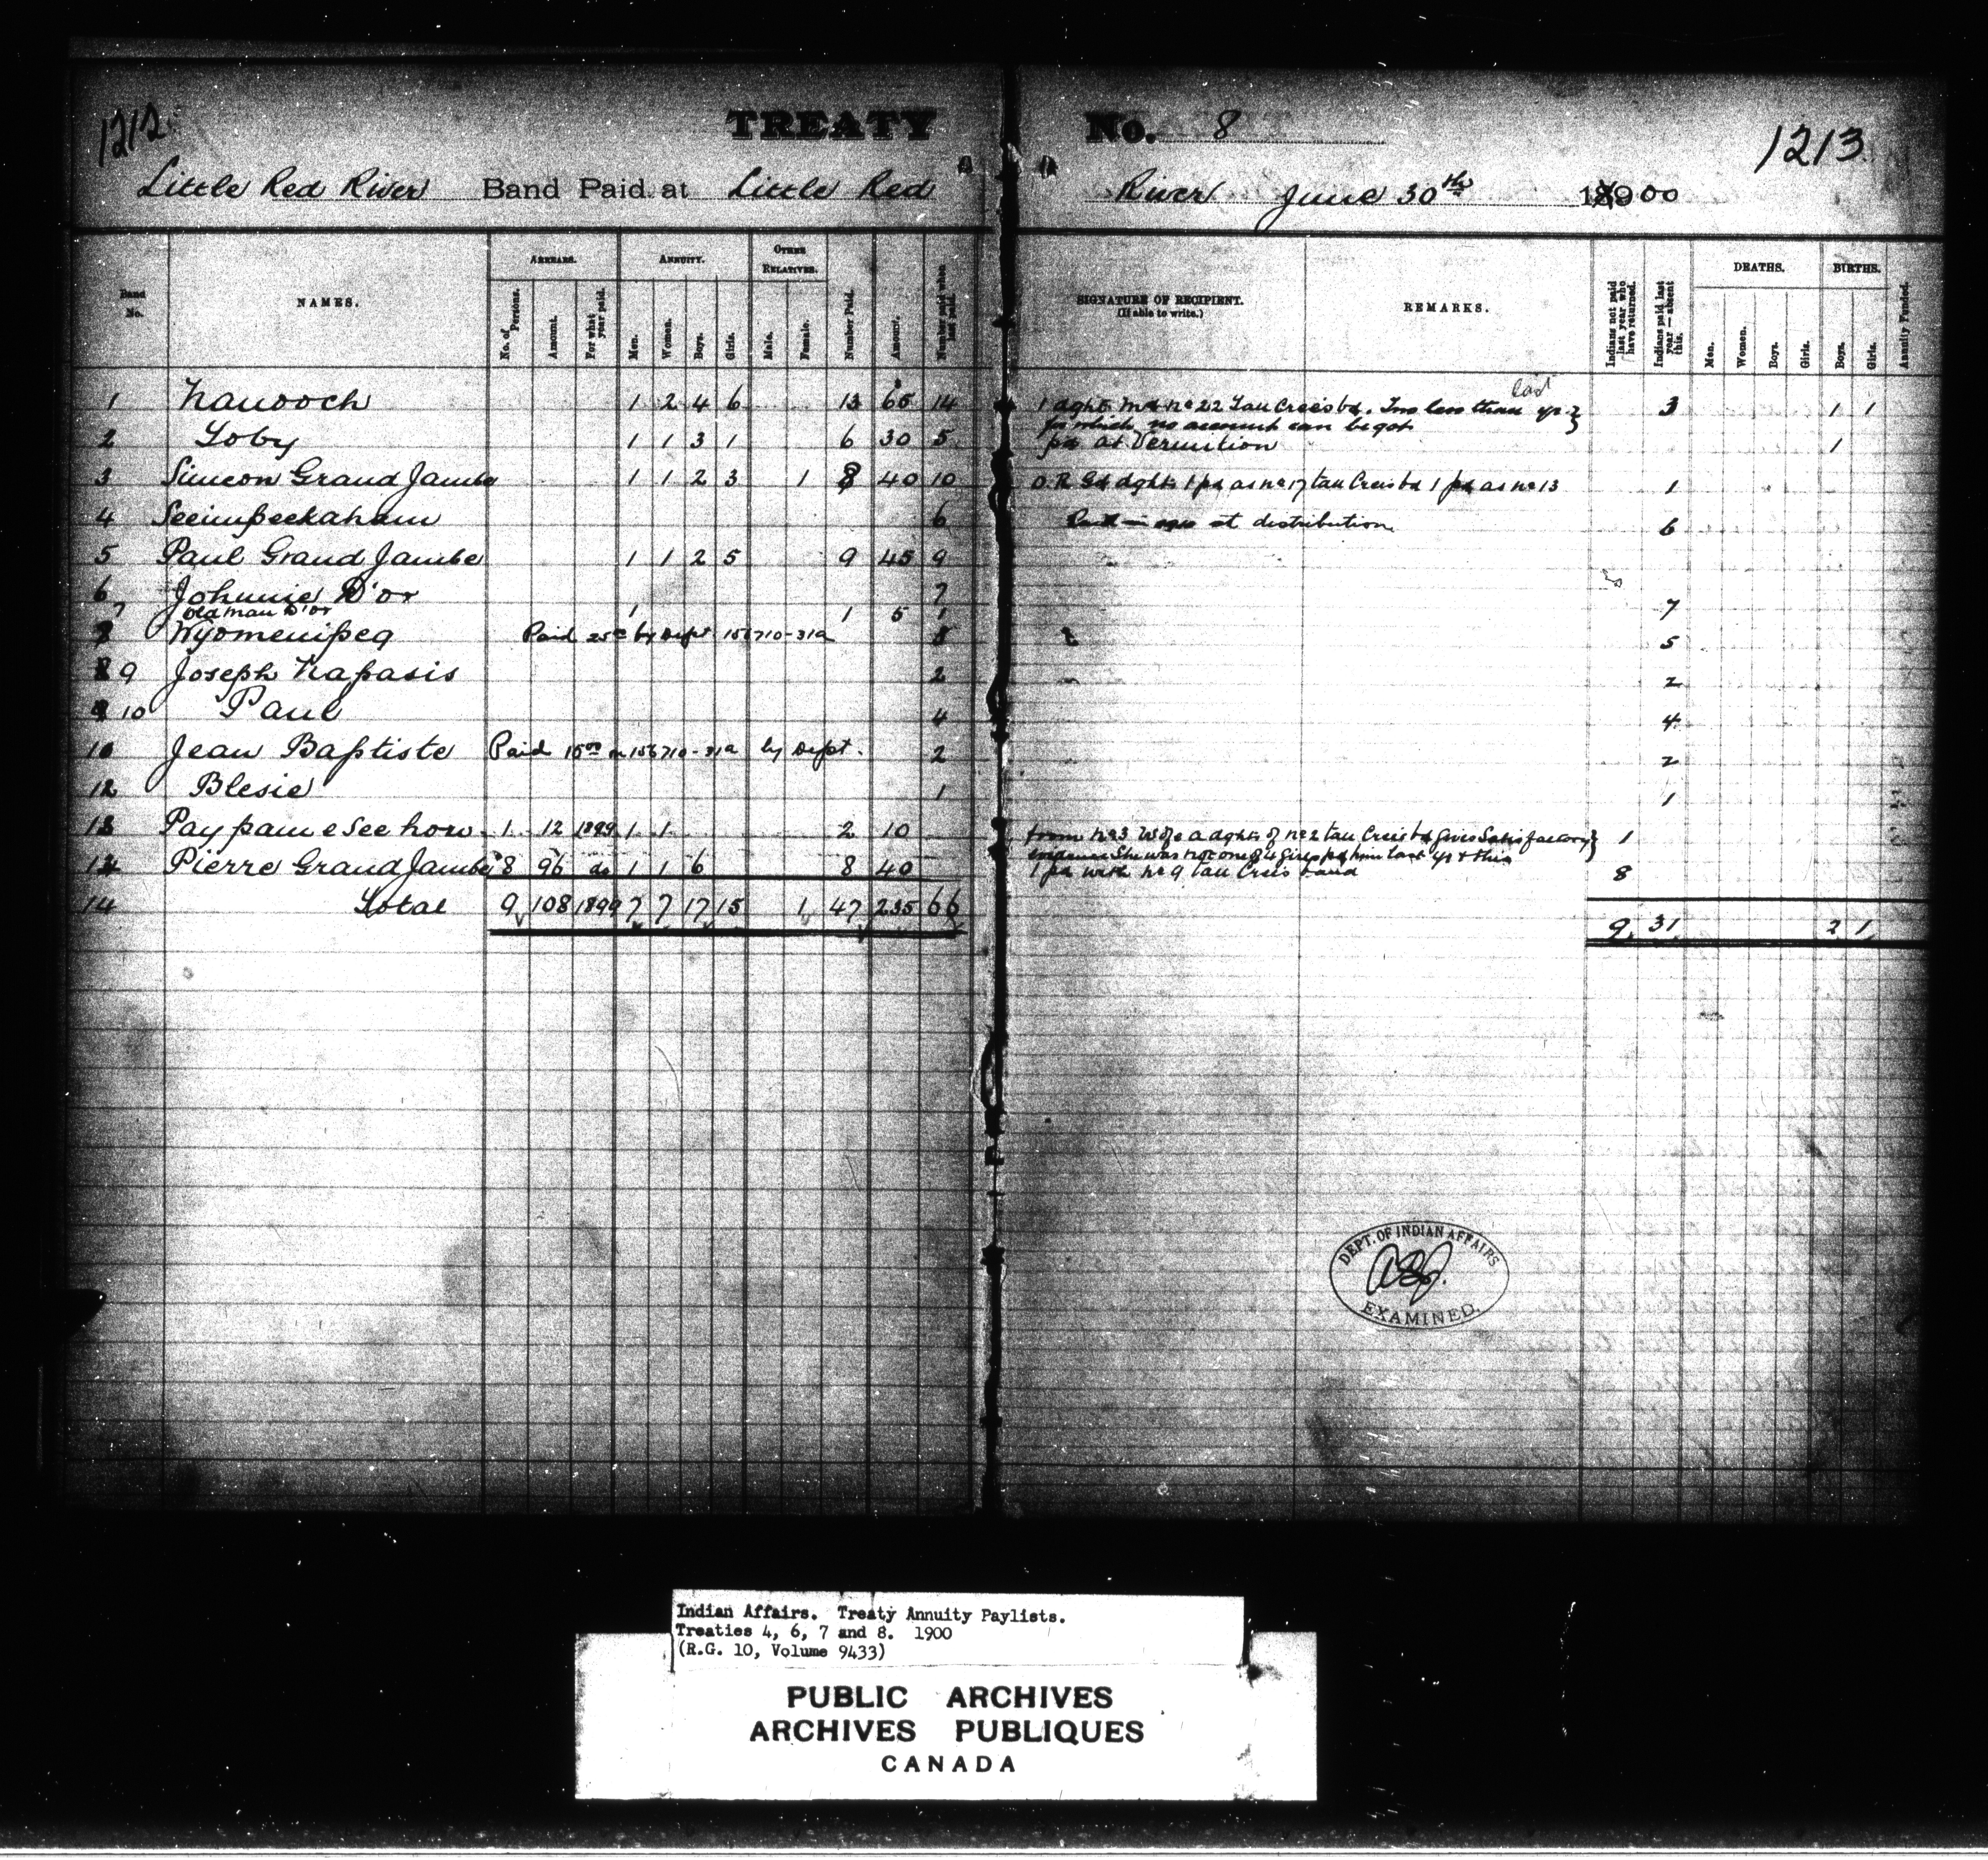 1212
TREATY No. 8
1213
Little Red River Band Paid at Little Red River June 30th 1900
Band No.
NAMES.
ARREARS.
No. of Persons.
Amount.
For what year paid.
ANNUITY.
Men.
Women.
Boys.
Girls.
OTHER RELATIVES.
Male.
Female.
Number Paid.
Amount.
Number paid when last paid.
SIGNATURE OF RECIPIENT.
(If able to write.)
REMARKS.
Indians not paid last year who have returned.
Indians paid last year—absent this.
DEATHS.
Men.
Women.
Boys.
Girls.
BIRTHS.
Boys.
Girls.
Annuity Funded.
1 Nanooch 1 2 4 6 13 65 14 1 dght md no 22 Tall Crees bd. Two less than last yr 3 1 1
for which no account can be got
2 Loby 1 1 3 1 6 30 5 pd at Vermilion 1
3 Simeon Grand Jambe 1 1 2 3 1 8 40 10 O.R. Gd dght 1 pd as no 17 tall Crees bd 1 pd as no 13 1
4 Seeimpeekaham 6 at distribution 6
5 Paul Grand Jambe 1 1 2 5 9 45 9
6 Johnnie D'or 7 7
7 Old Man D'or 1 1 5 1
8 Wyomenipeg Paid 25c by Dept 156710-31a 5
9 Joseph Napasis 2 2
10 Paul 4 4
10 Jean Baptiste Paid 15.00 on 156710-31a by Dept. 2 2
12 Blesie 1 1
13 Pay pam e See how 1 12 1899 1 1 2 10 from No 3 Wife a dght of no 2 tall Crees bd Gives Satisfactory 1
evidence She was not one of 4 Girls pd him last yr & this
14 Pierre Grand Jambe 8 96 do 1 1 6 8 40 1 pd with no 9 tall Crees band 8
14 Total 9 108 1899 7 7 17 15 1 47 235 66 9 31 2 1
DEPT. OF INDIAN AFFAIRS
EXAMINED.
Indian Affairs. Treaty Annuity Paylists.
Treaties 4, 6, 7 and 8. 1900
(R.G. 10, Volume 9433)
PUBLIC ARCHIVES
ARCHIVES PUBLIQUES
CANADA